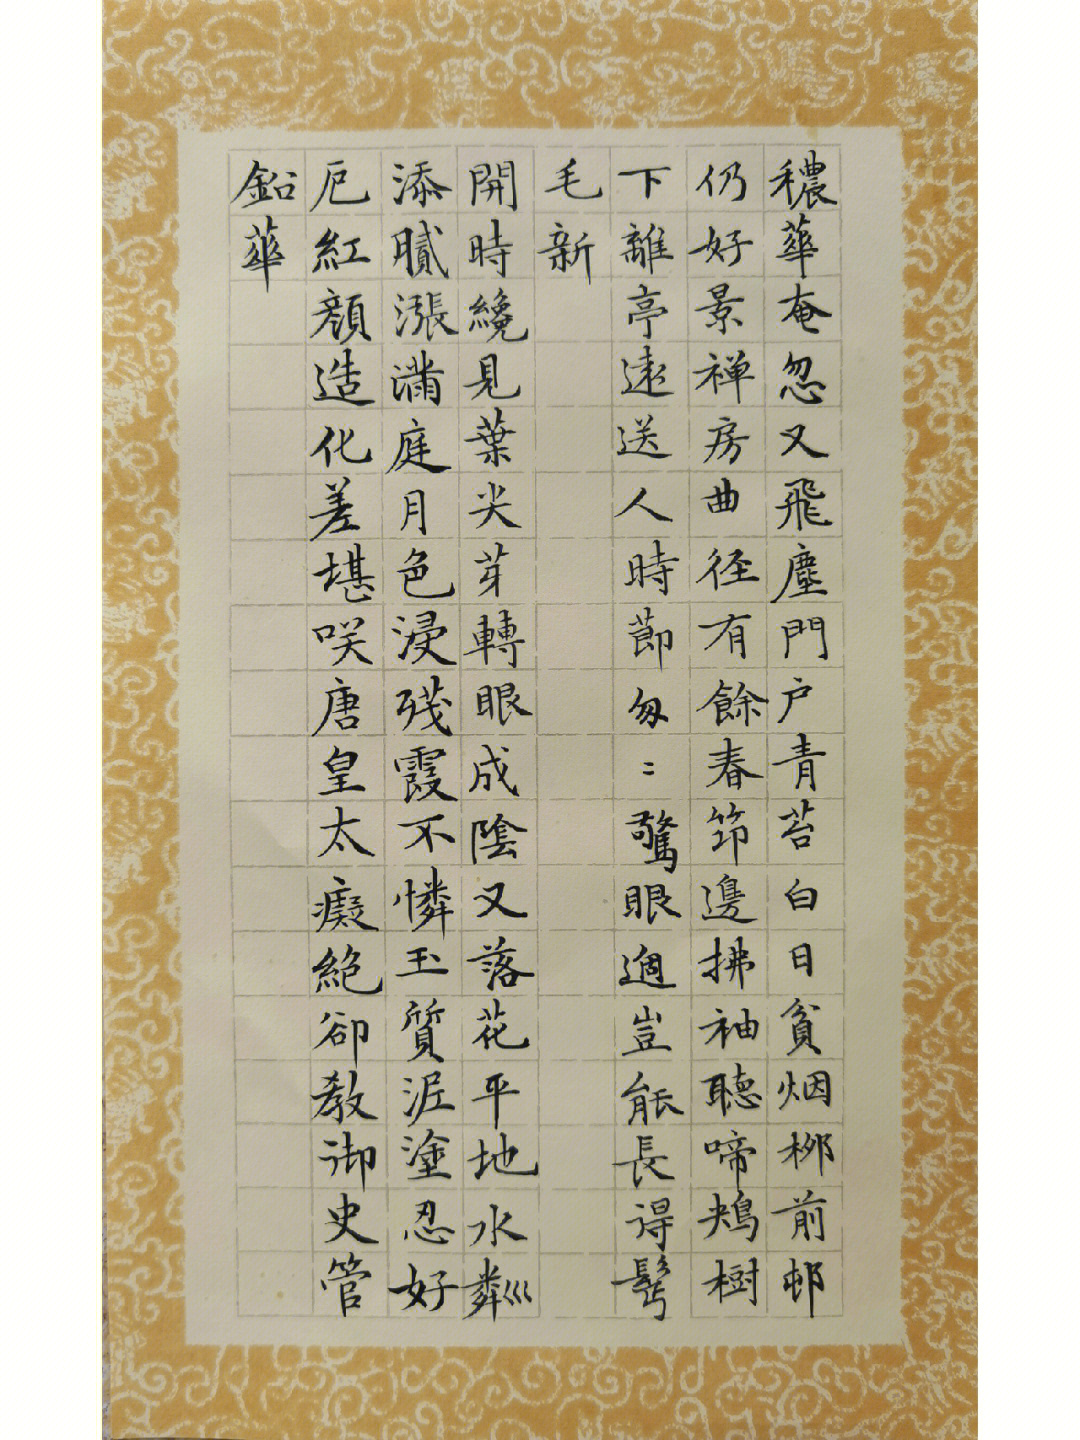 穠華奄忽又飛塵門户青苔白日貧烟桞前邨
仍好景禅房曲径有餘春笻邊拂袖聽啼鴂樹
下離亭遠送人時莭匆〻驚眼過豈能長得鬓
毛新
開時纔見葉尖芽轉眼成陰又落花平地水粼
添膩漲滿庭月色浸殘霞不憐玉質泥塗忍好
厄紅顏造化差堪咲唐皇太癡絶卻教御史管
鉛華